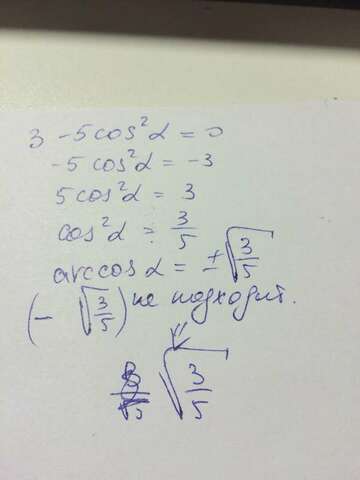 3 - 5cos²α = 0
-5cos²α = -3
5cos²α = 3
cos²α = 3/5
arccosα = ±√(3/5)
(-√(3/5)) не подходит.
⇓
√(3/5)